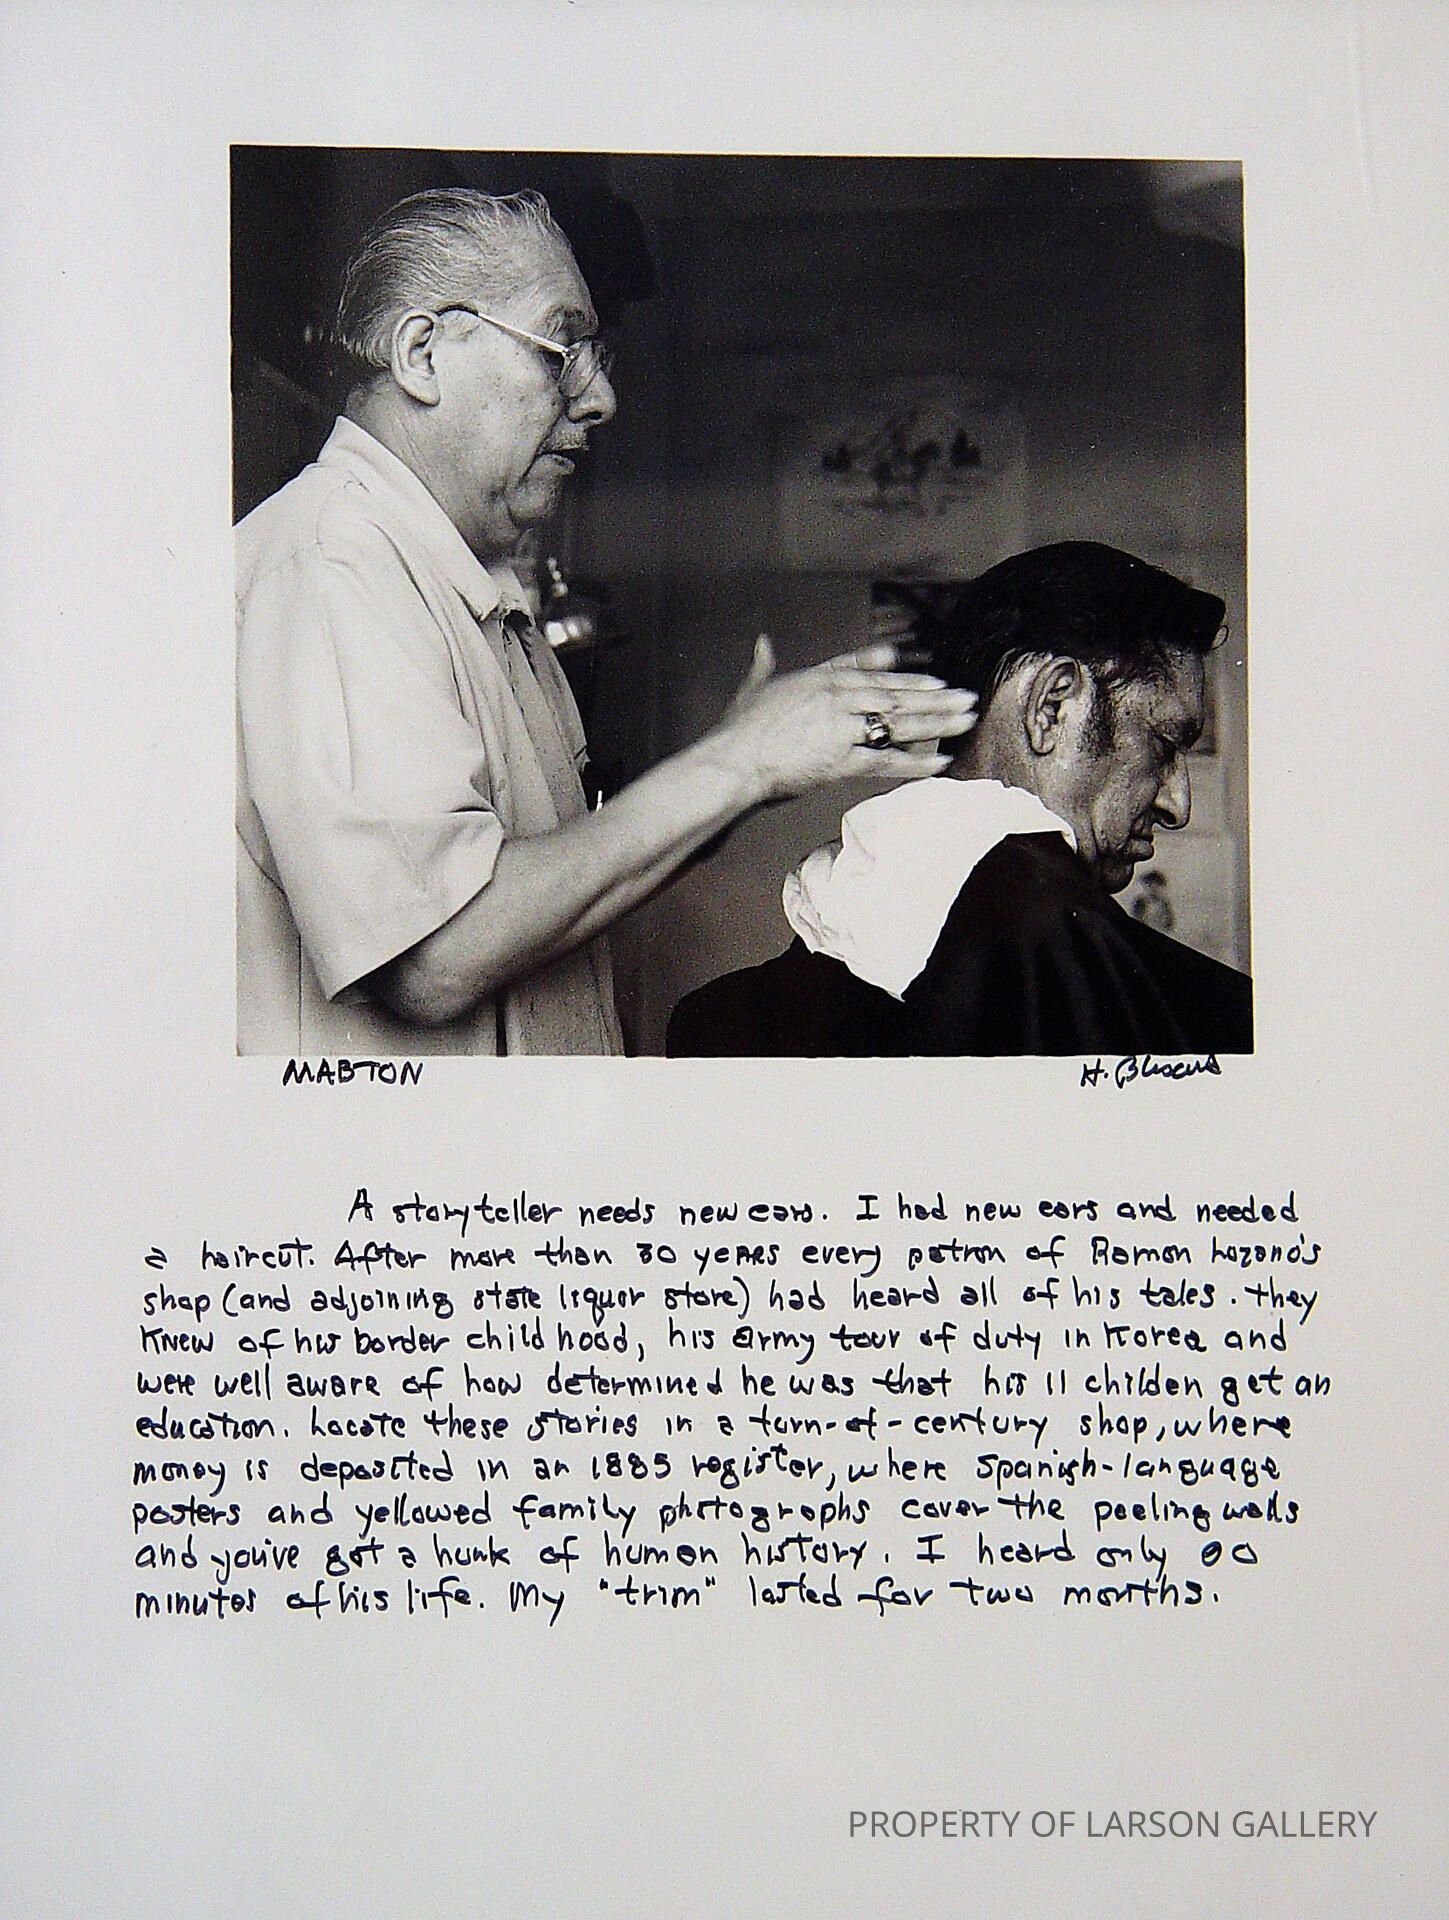 MABTON
H.
A storyteller needs new ears. I had new ears and needed
a haircut. After more than 30 years every patron of Ramon Lozano's
shop (and adjoining state liquor store) had heard all of his tales. They
knew of his border childhood, his army tour of duty in Korea and
were well aware of how determined he was that his 11 childen get an
education. Locate these stories in a turn-of-century shop, where
money is deposited in an 1885 register, where Spanish-language
posters and yellowed family photographs cover the peeling walls
and you've got a hunk of human history. I heard only
minutes of his life. My "trim" lasted for two months.
PROPERTY OF LARSON GALLERY